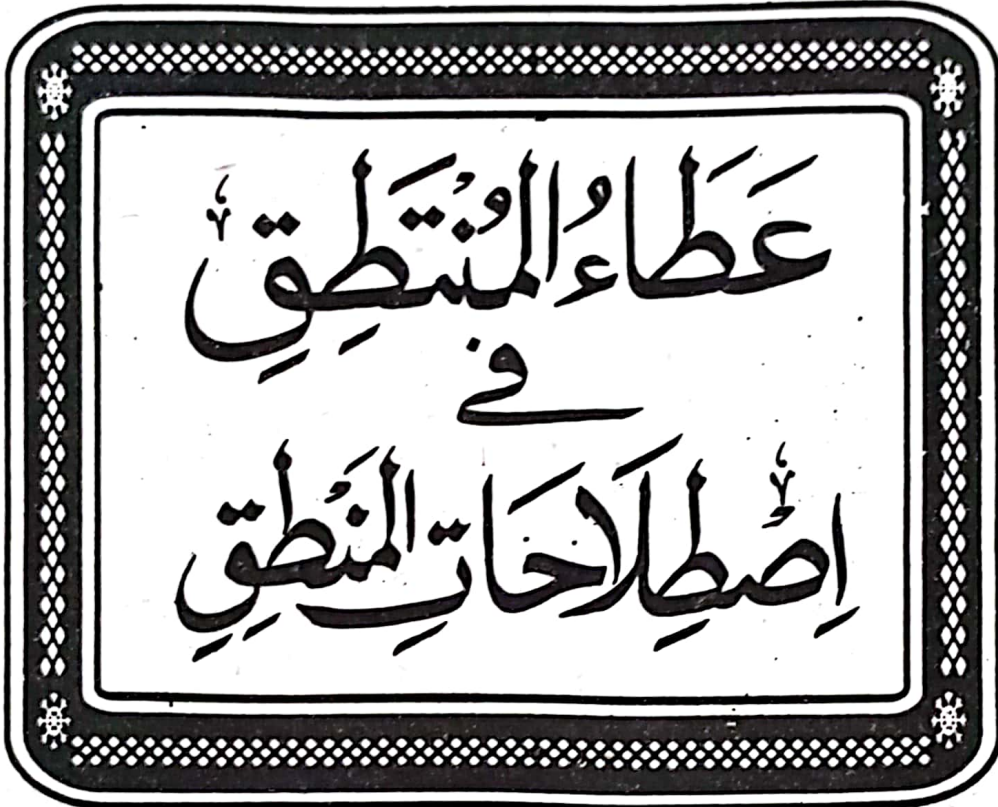 عَطَاءُ الْمُنْتَطِقِ
فی
اِصْطِلَاحَاتِ الْمَنْطِقِ